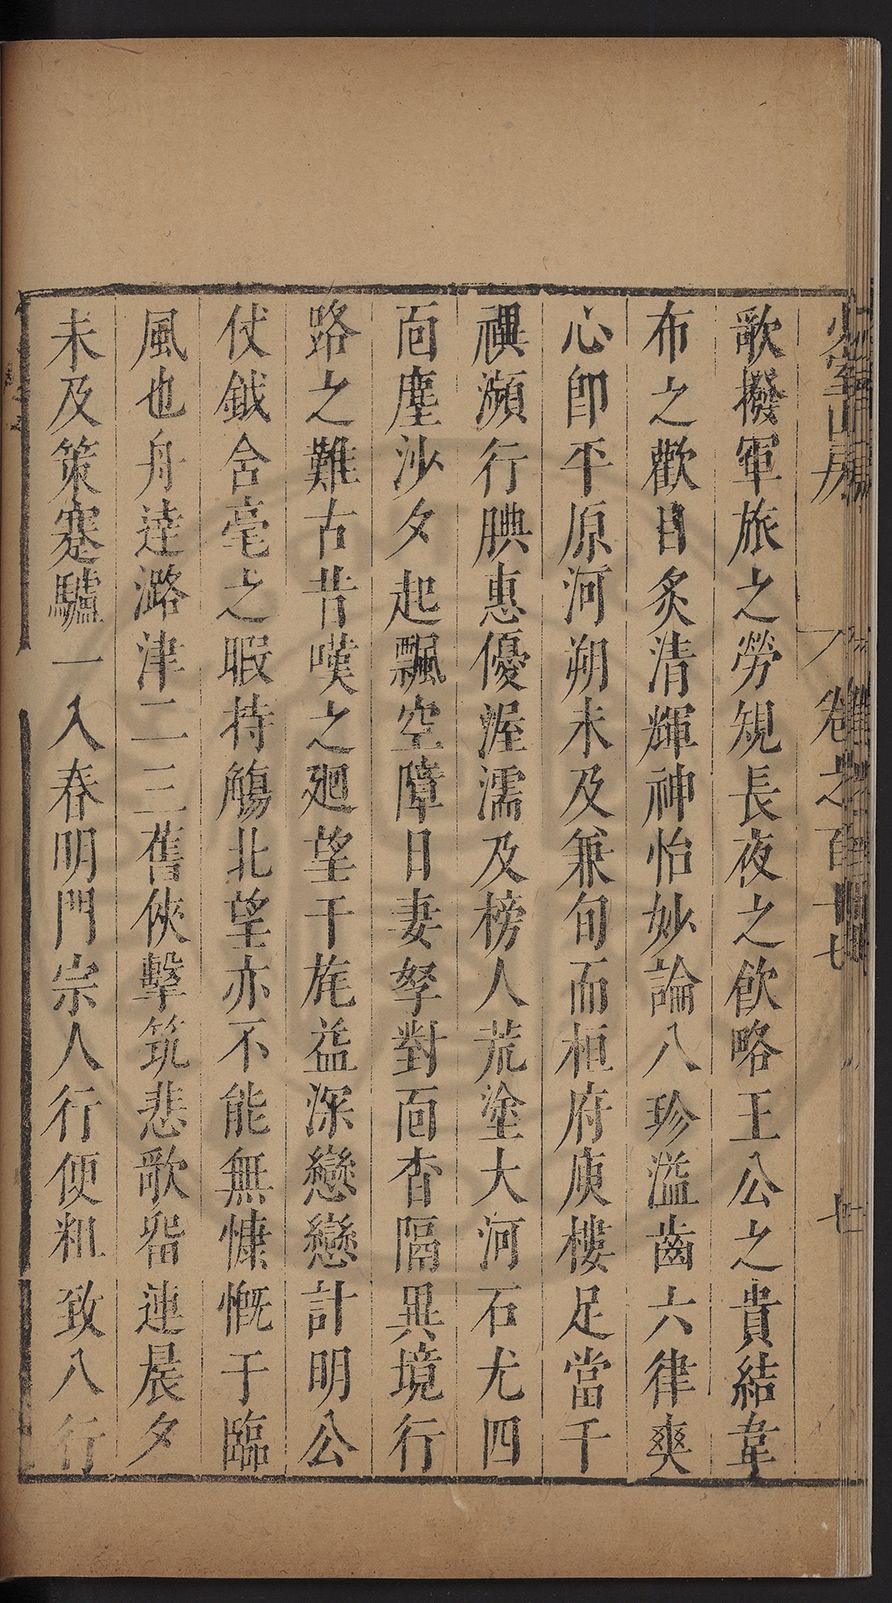 少室山房 卷之百十七 七
歌撥軍旅之勞規長夜之飲略王公之貴結韋
布之歡目炙清輝神怡妙論八珍溢齒六律爽
心卽平原河朔未及兼旬而桓府庾樓足當千
禩瀕行腆惠優渥濡及榜人荒塗大河石尤四
面塵沙夕起飄空障日妻孥對面杳隔異境行
路之難古昔嘆之廻望干旄益深戀戀計明公
仗鉞含毫之暇持觴北望亦不能無慷慨于臨
風也舟達潞津二三舊俠擊筑悲歌畱連晨夕
未及策蹇驢一入春明門宗人行便粗致八行